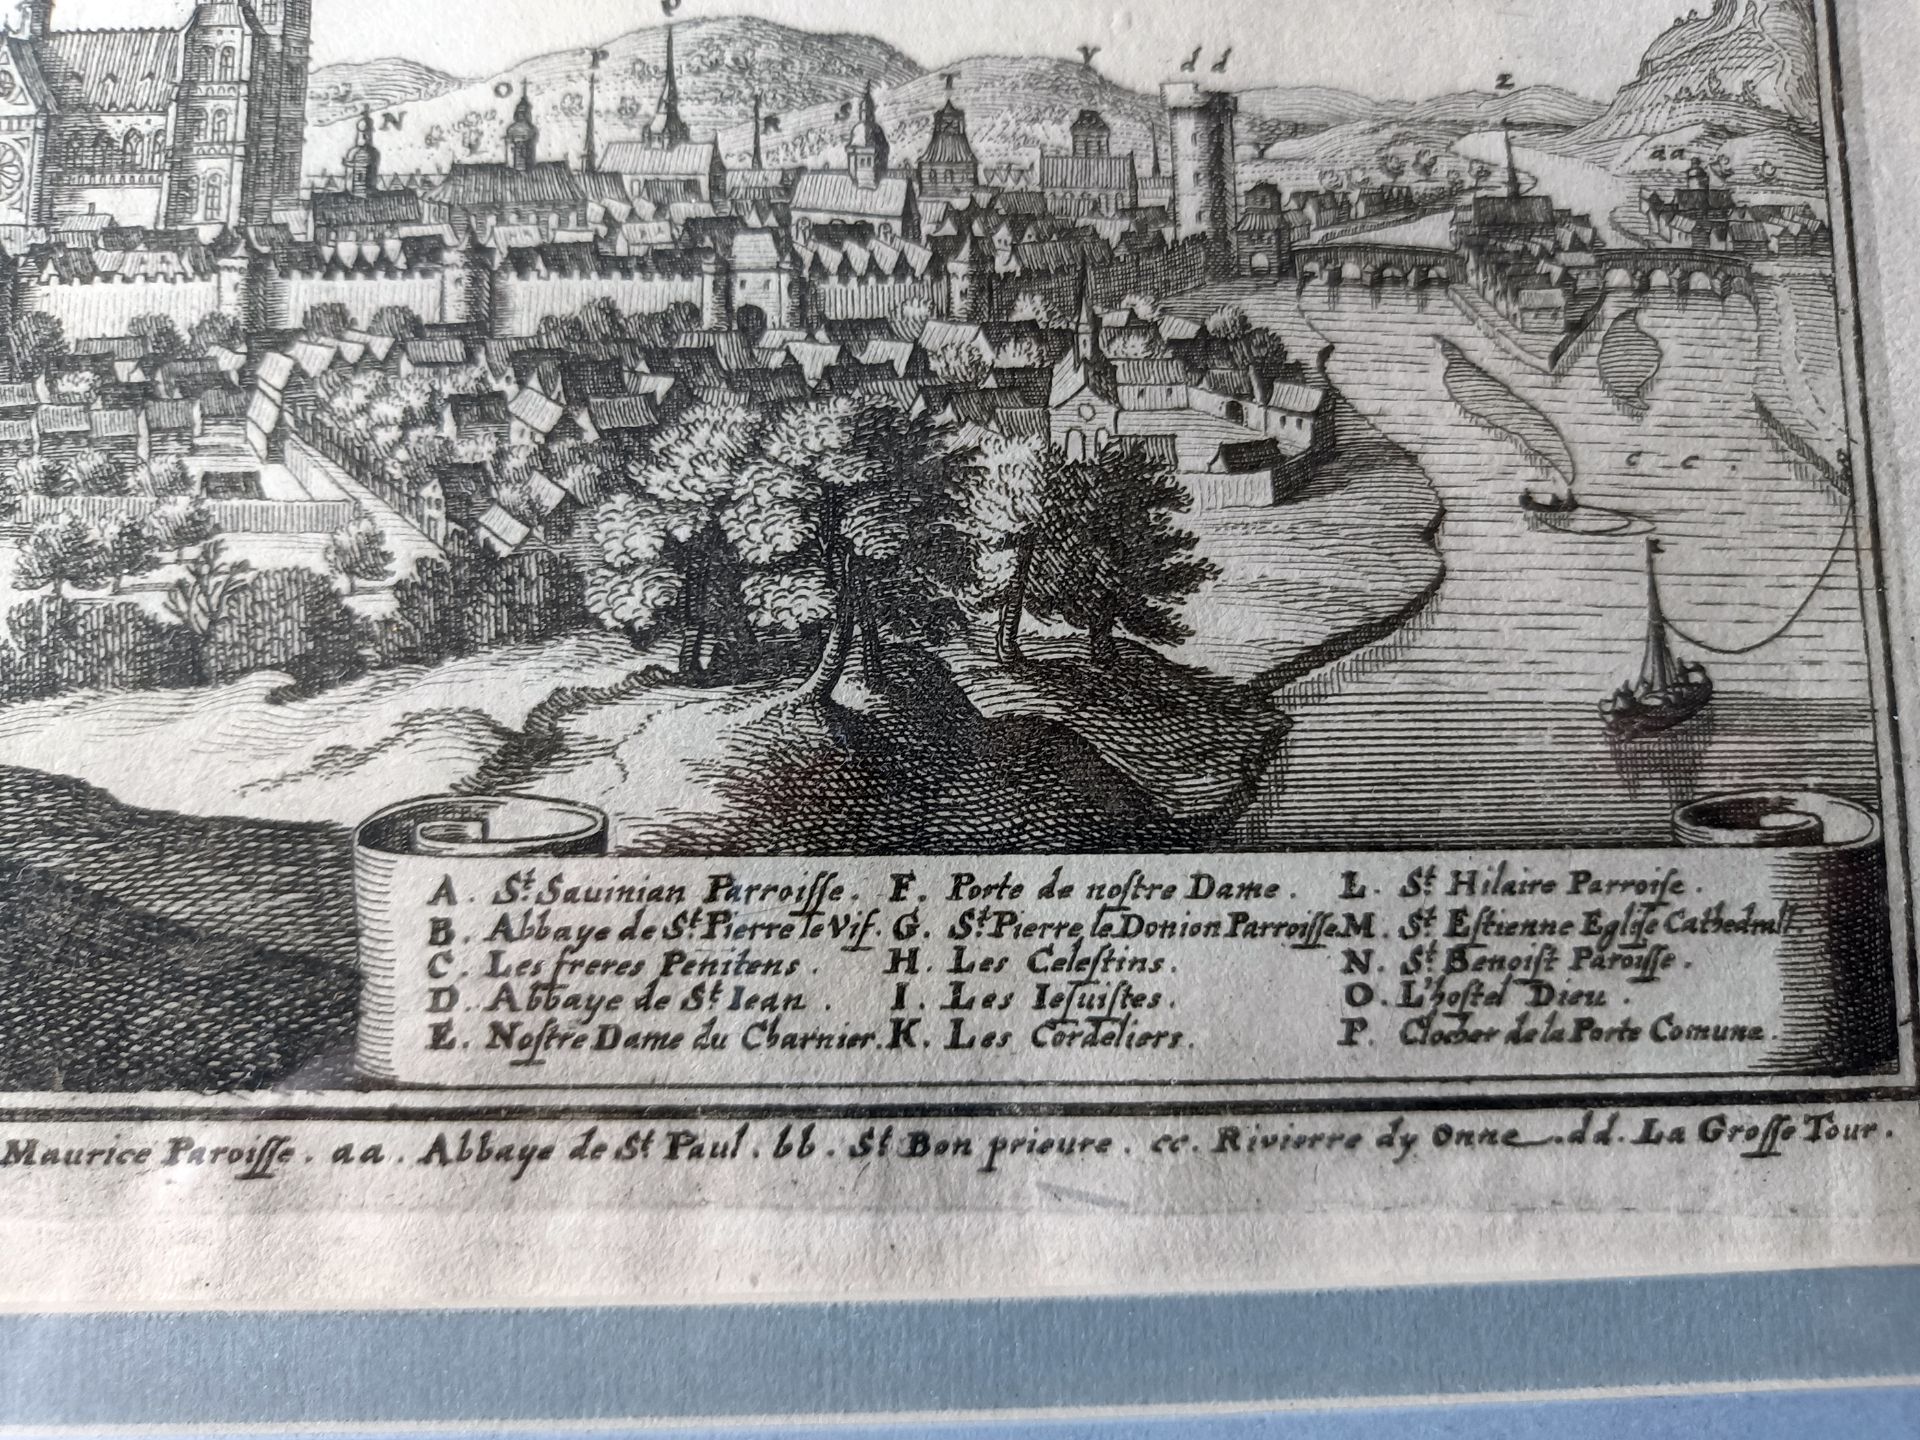 N O P P R S T Y dd Z aa
c c .
A. St. Sauinian Parroiſſe. F. Porte de noſtre Dame. L. St Hilaire Parroiſe.
B. Abbaye de St. Pierre le Vif. G. St. Pierre le Donion Parroiſſe. M. St Eſtienne Egliſe Cathedrall.
C. Les freres Penitens. H. Les Celeſtins. N. St Benoiſt Paroiſſe.
D. Abbaye de St Iean. I. Les Ieſuiſtes. O. L'hoſtel Dieu.
E. Noſtre Dame du Charnier. K. Les Cordeliers. P. Clocher de la Porte Comune.
Maurice Paroiſſe. aa. Abbaye de St Paul. bb. St Bon prieure. cc. Rivierre dy Onne. dd. La Groſſe Tour.